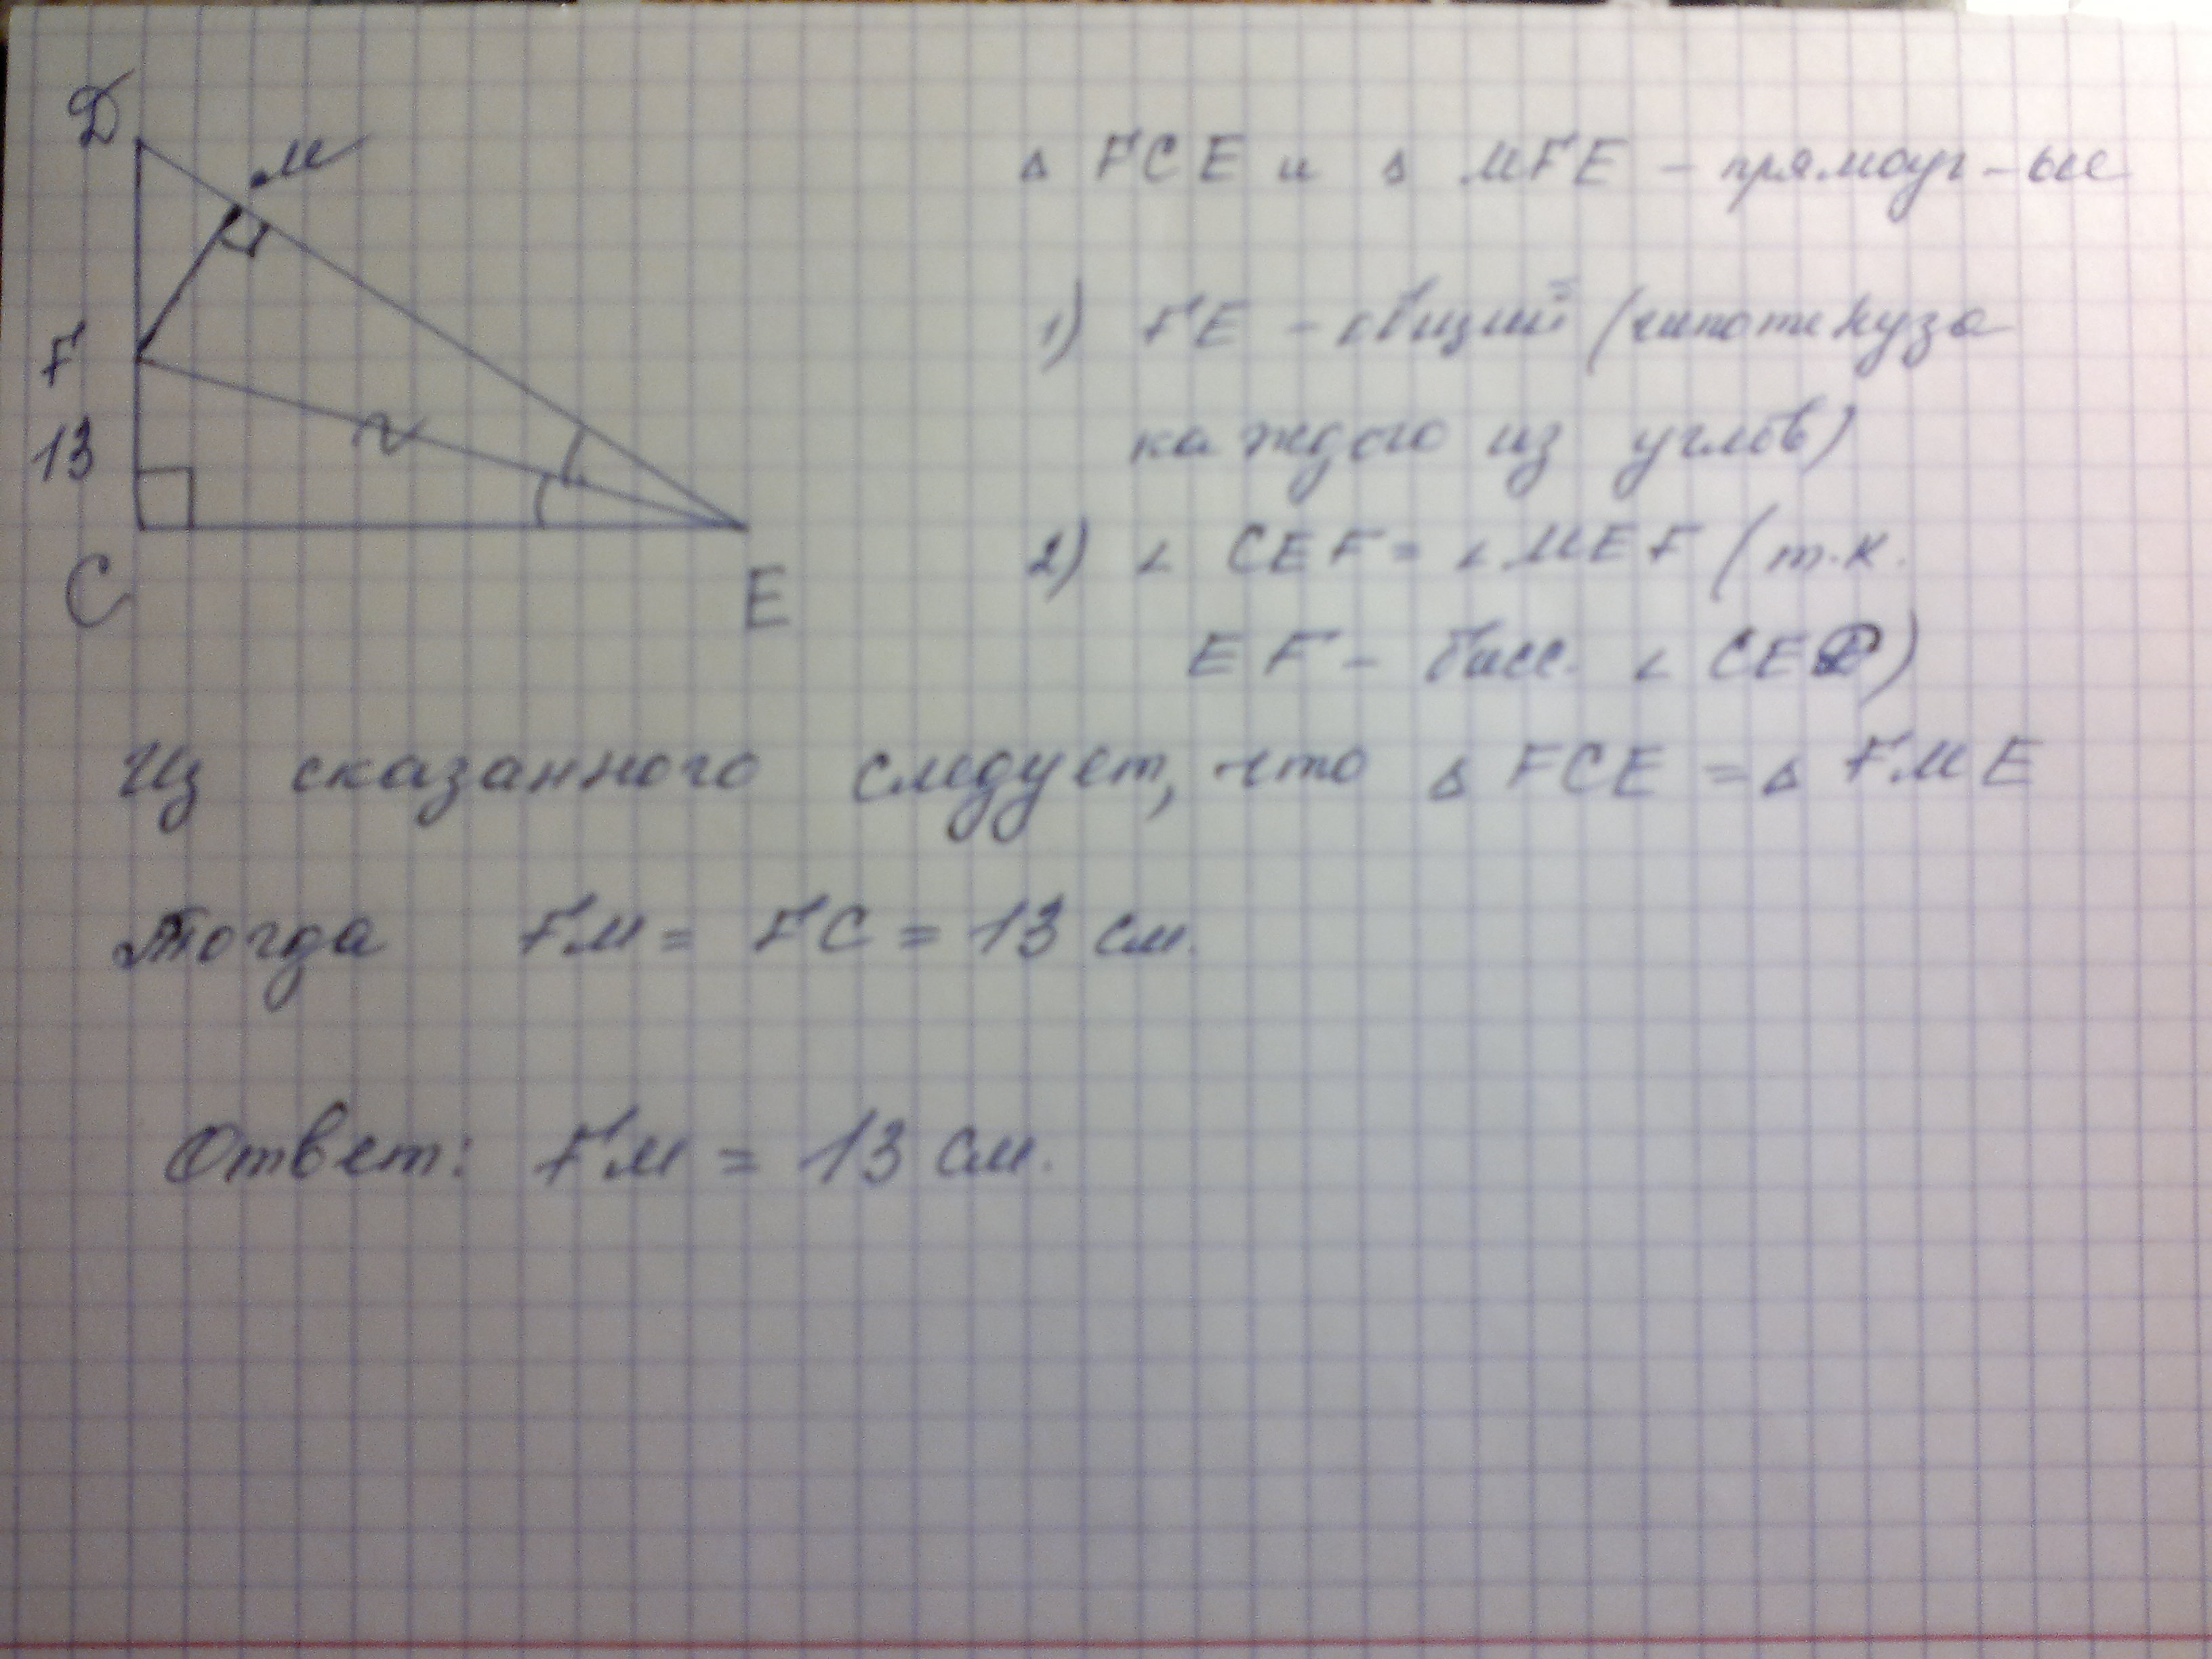 Д
М
F
13
C
E
Δ FCE и Δ MFE – прямоуг-ые
1) FE – общий (гипотенуза
каждого из углов)
2) ∠ CEF = ∠ MEF (т.к.
EF – бисс. ∠ CED)
Из сказанного следует, что Δ FCE = Δ FME
Тогда FM = FC = 13 см.
Ответ: FM = 13 см.